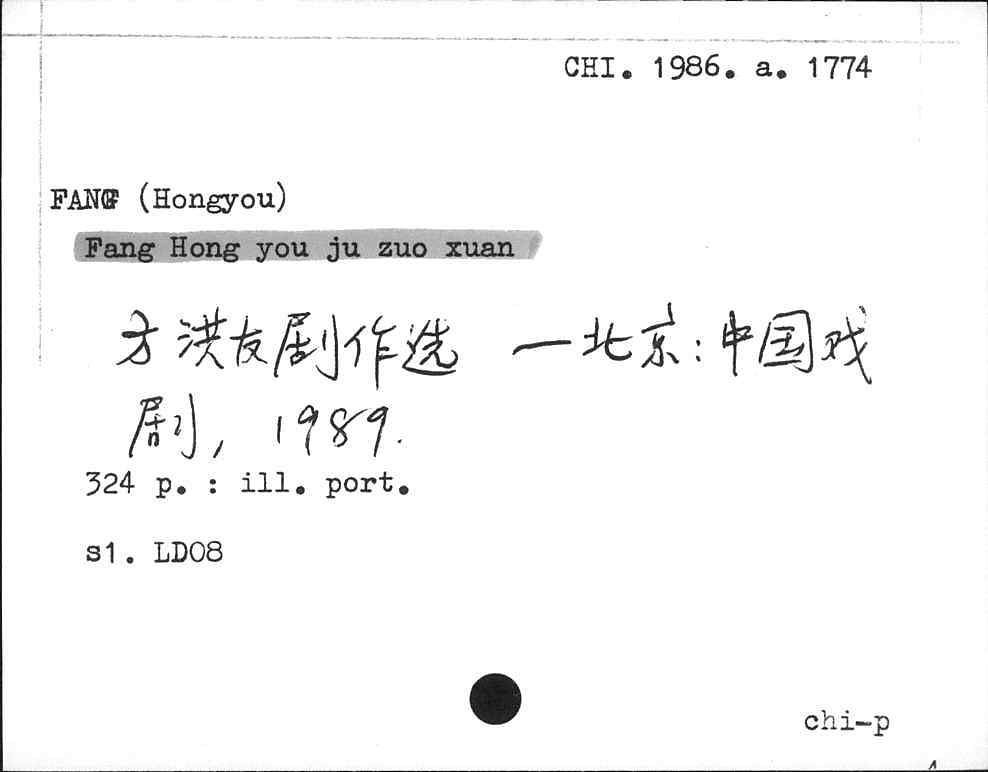 CHI. 1986. a. 1774
FANG (Hongyou)
Fang Hong you ju zuo xuan
方洪友剧作选 一北京:中国戏
剧, 1989.
324 p. : ill. port.
s1. LD08
chi-p